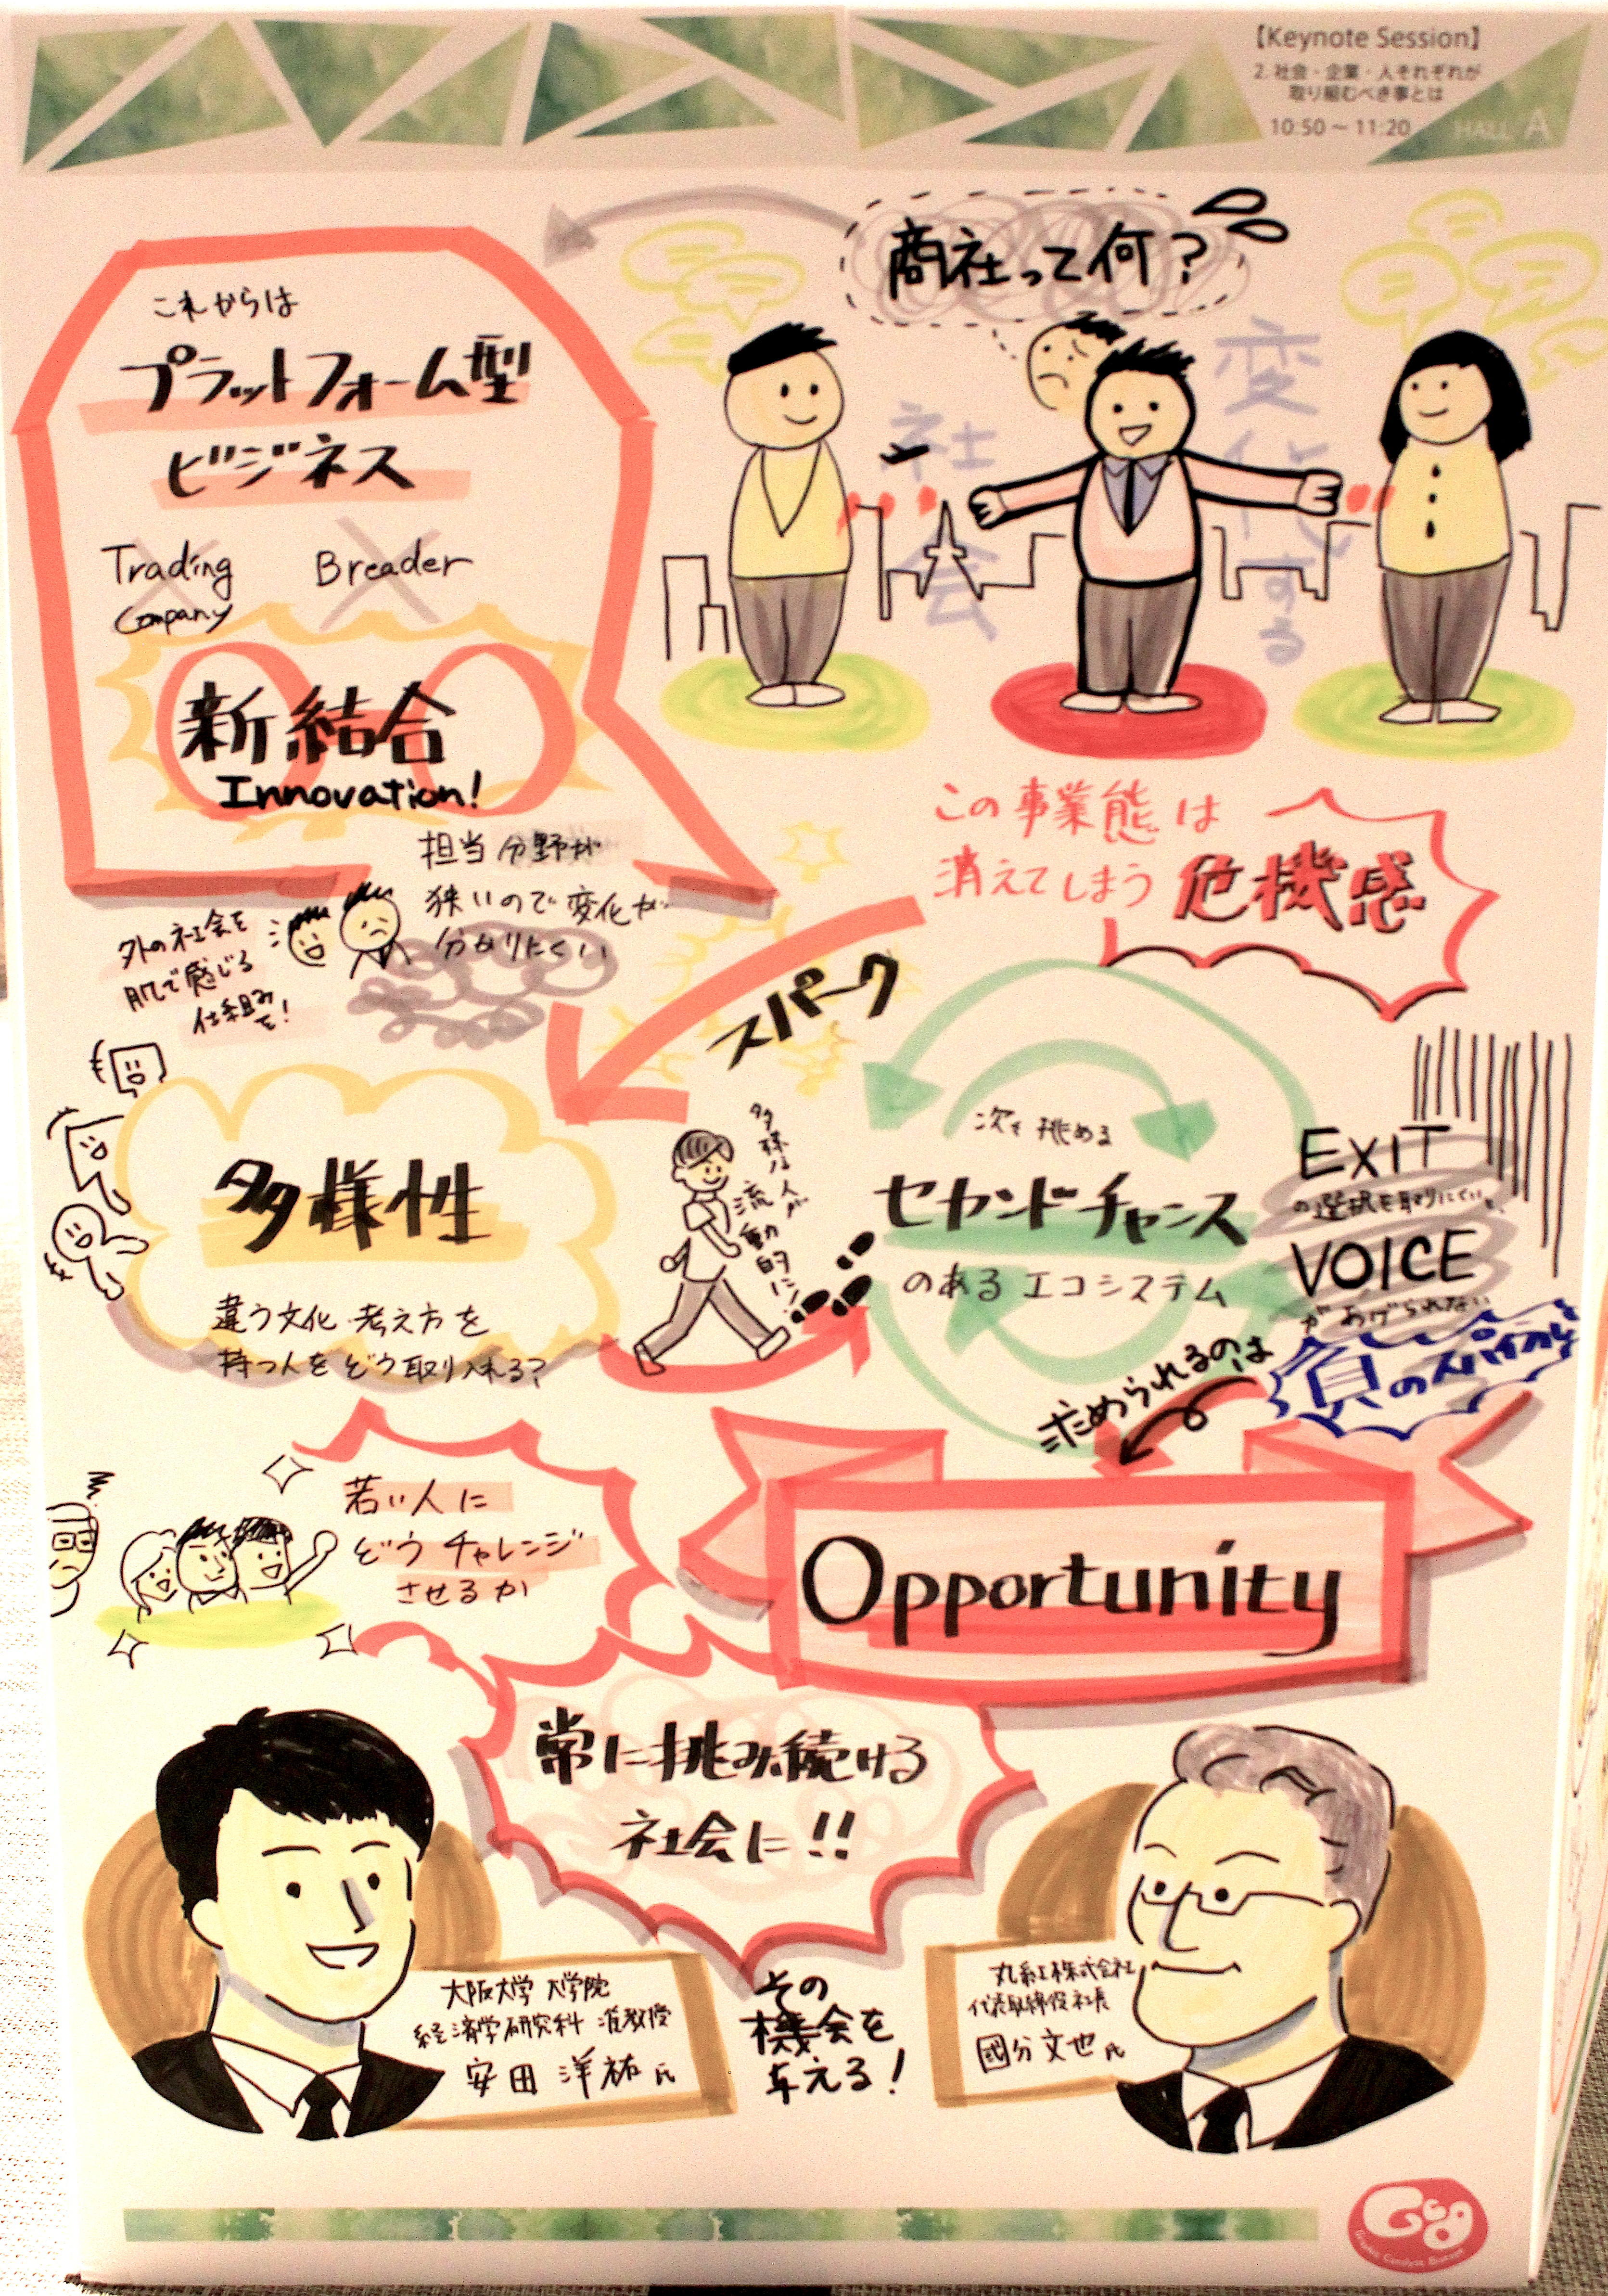 【Keynote Session】
2. 社会・企業・人それぞれが
取り組むべき事とは
10:50～11:20 HALL A
商社って何？
これからは
プラットフォーム型
ビジネス
Trading
Company
Breader
新結合
Innovation!
社会
変化する
この事業態は
消えてしまう
危機感
担当分野が
狭いので変化が
分かりにくい
外の社会を
肌で感じる
仕組み
を！
スパーク
多様性
違う文化・考え方を
持つ人をどう取り入れる？
多様な人が
流動的に！
次を挑める
セカンドチャンス
のあるエコシステム
EXIT
の選択を取りにくい、
VOICE
があげられない
負のスパイラル
求められるのは
Opportunity
若い人に
どうチャレンジ
させるか
常に挑み続ける
社会に!!
その
機会を
与える！
大阪大学 大学院
経済学研究科 准教授
安田 洋祐 氏
丸紅株式会社
代表取締役社長
國分文也 氏